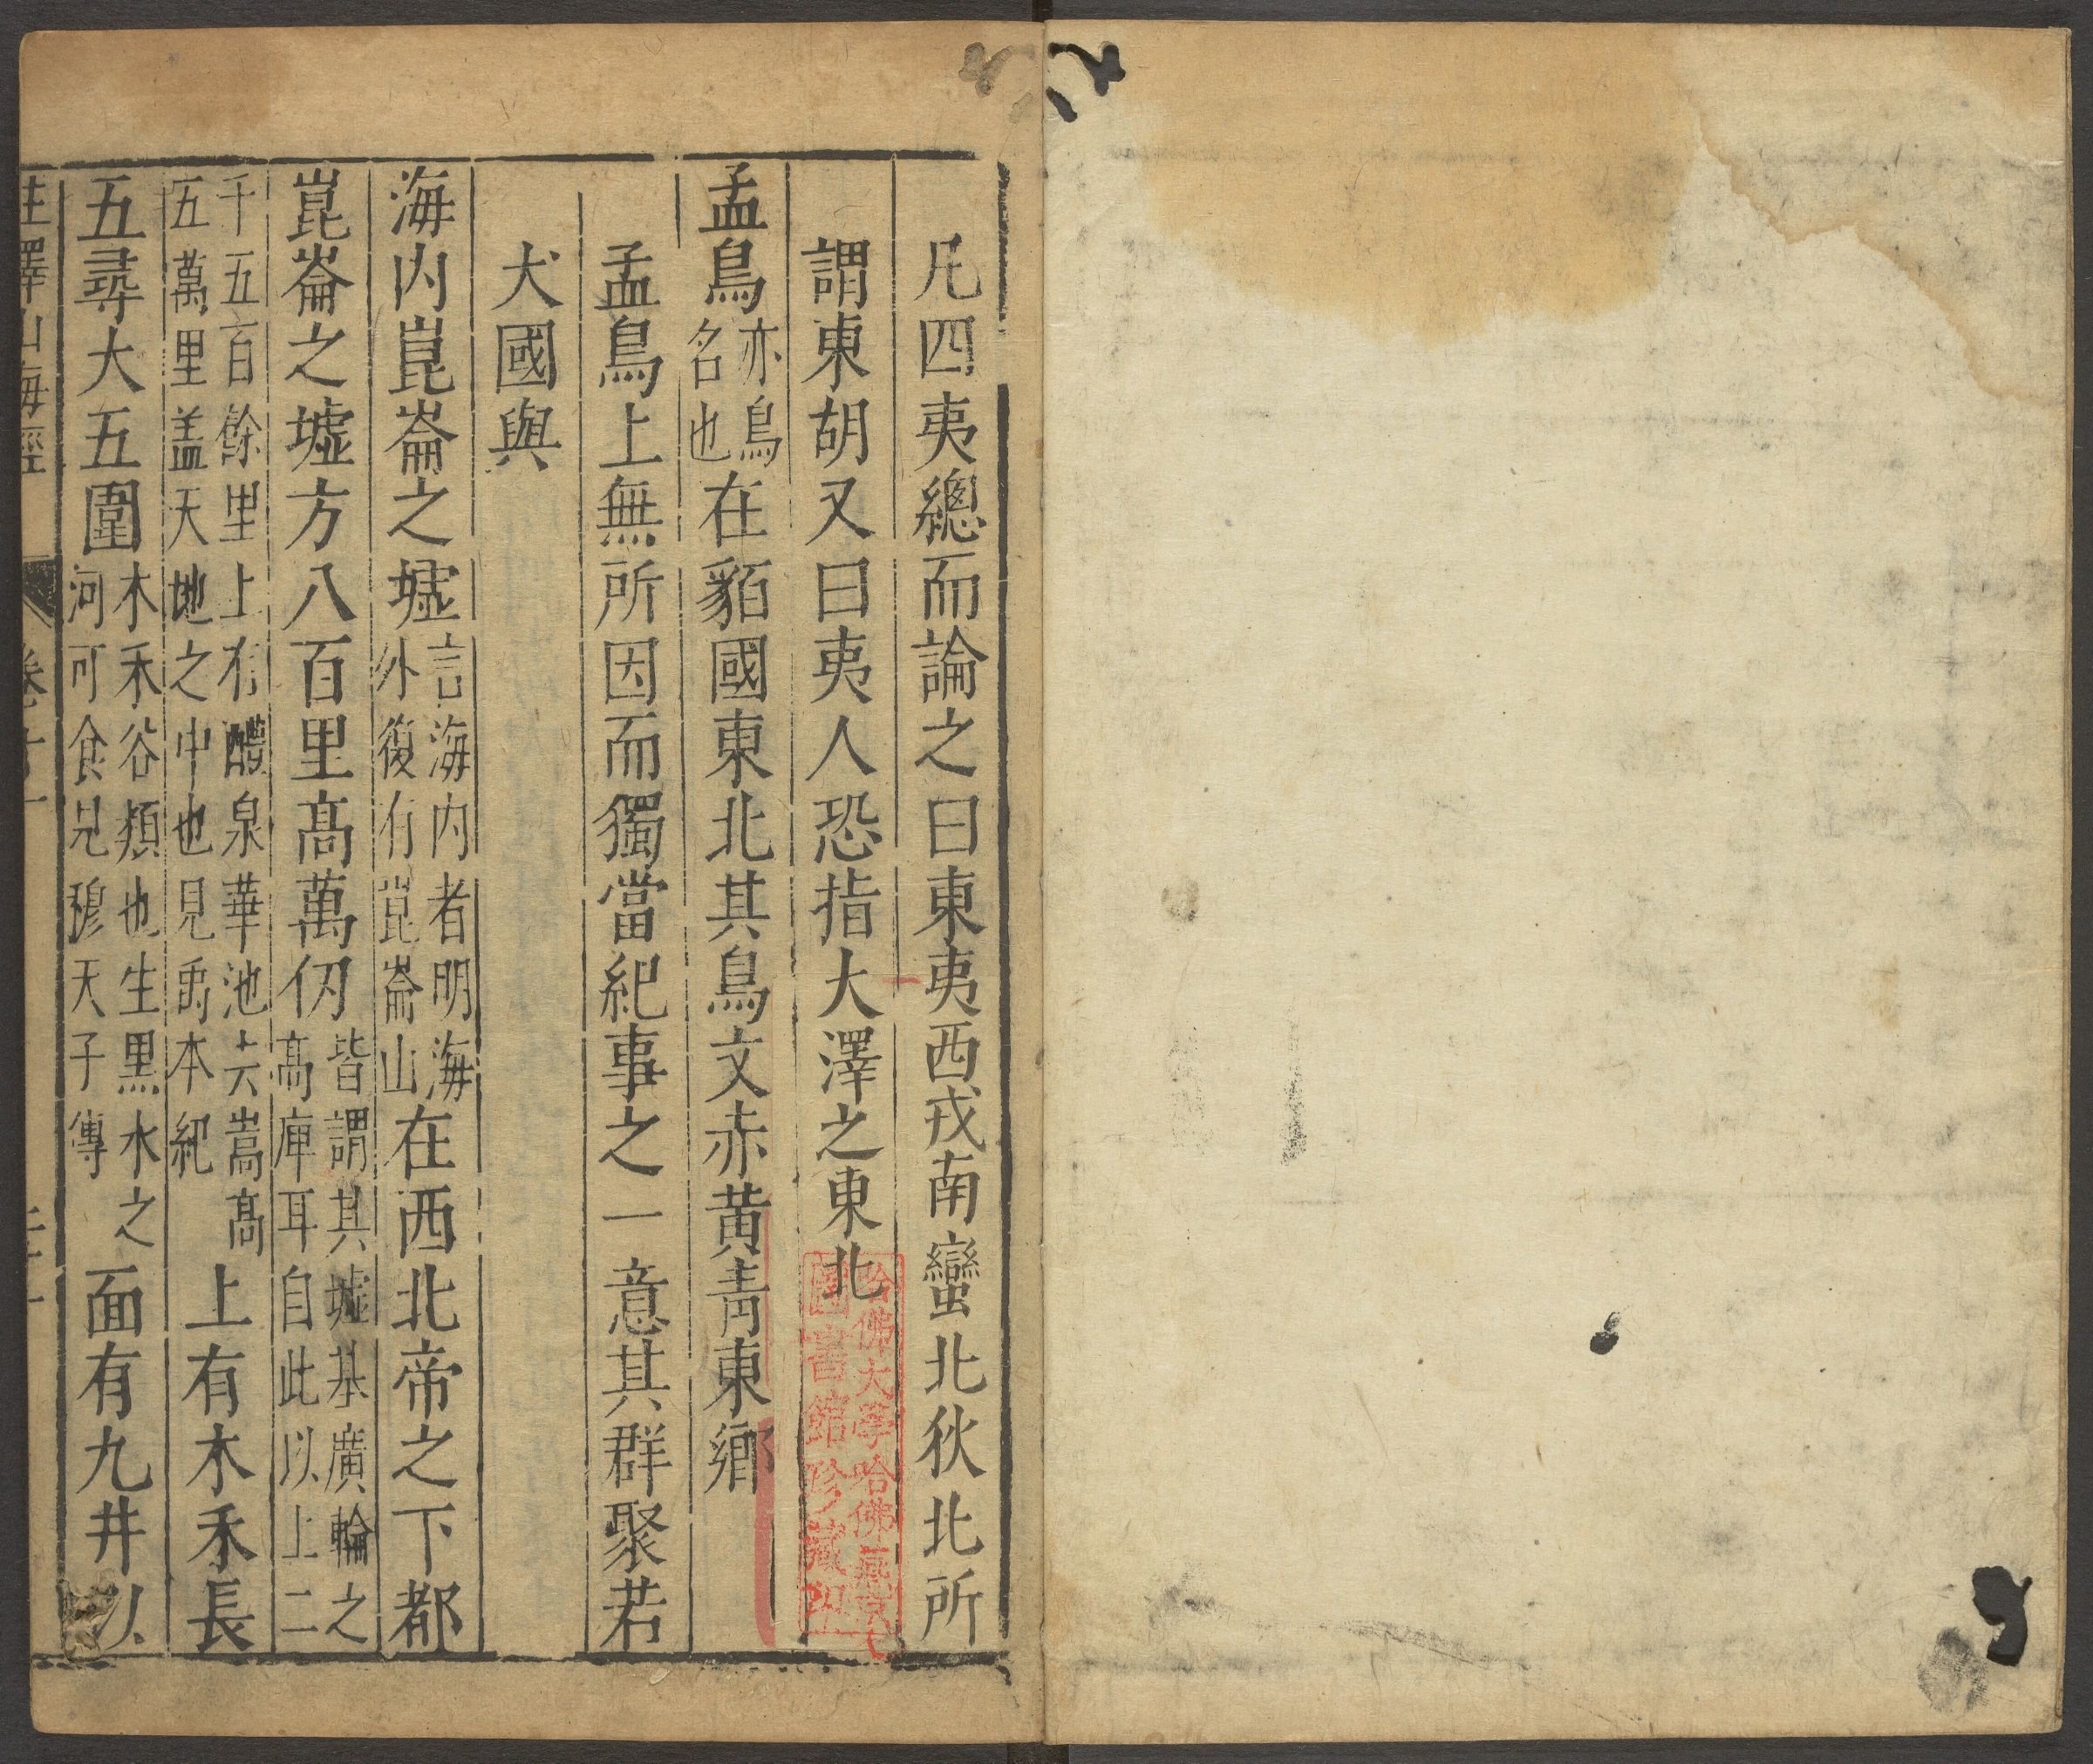 凡四夷總而論之曰東夷西戎南蠻北狄北所
謂東胡又曰夷人恐指大澤之東北
孟鳥亦鳥名也在貊國東北其鳥文赤黃青東鄉
孟鳥上無所因而獨當紀事之一意其群聚若
犬國與
海内崑崙之墟言海内者明海外復有崑崙山在西北帝之下都
崑崙之墟方八百里高萬仞皆謂其墟基廣輪之高庳耳自此以上二
千五百餘里上有醴泉華池去嵩高五萬里盖天地之中也見禹本紀上有木禾長
五尋大五圍木禾谷類也生黑水之河可食見穆天子傳面有九井以
山海經
卷十一
哈佛大學哈佛燕京
圖書館珍藏印